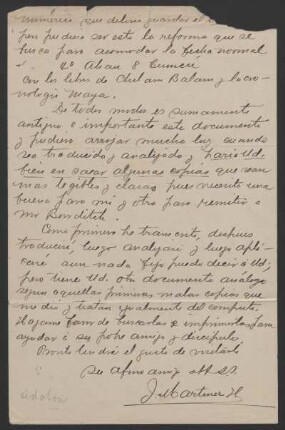 numérico que debian guardar el
pero pudiera ser esta la reforma que se
busca para acomodar la fecha normal
Ahau 8 Cumcú
con los libros de Chilam Balam y la cro-
nologia Maya.
De todos modos es sumamente
antiguo e importante este documento
y pudiera arrojar mucha luz cuando
sea traducido y analizado y haria Ud.
bien en sacar algunas copias que sean
mas legibles y claras, pues necesito una
buena para mi y otra para remitir a
Mr Bowditch.
Como primero he transcrito, despues
traduciré, luego analizaré y luego apli-
caré aun nada fijo puedo decir á Ud;
pero tiene Ud. otro documento análogo
segun aquellas primeras malas copias que
me dió y tratan igualmente del computo.
Hagame favor de buscarlas e imprimirlas para
ayudar á su pobre amigo y discipulo.
Pronto tendré el gusto de visitarlo
Su afmo amigo att S.S.
J. Martinez H